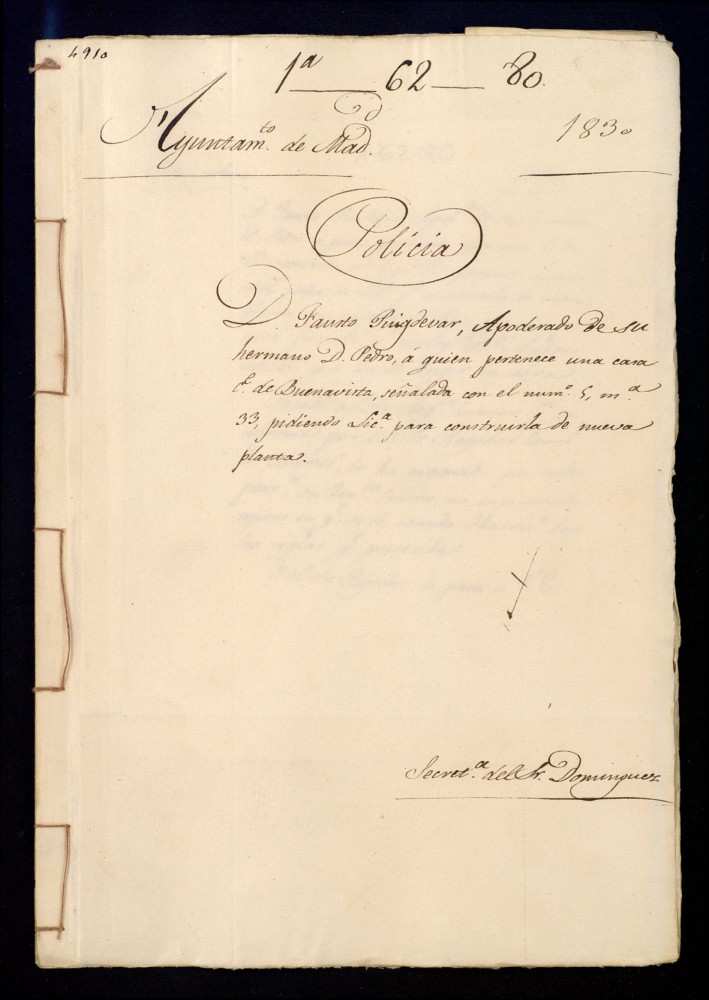 4910
1ª 62 80.
Ayuntam.to de Mad.d
1830
Policia
D. Fausto Puigdevar, Apoderado de su
hermano D. Pedro, á quien pertenece una casa
c.e de Buenavista, señalada con el num.o 5, m.a
33, pidiendo Lic.a para construirla de nueva
planta.
Secret.a del Sr. Dominguez